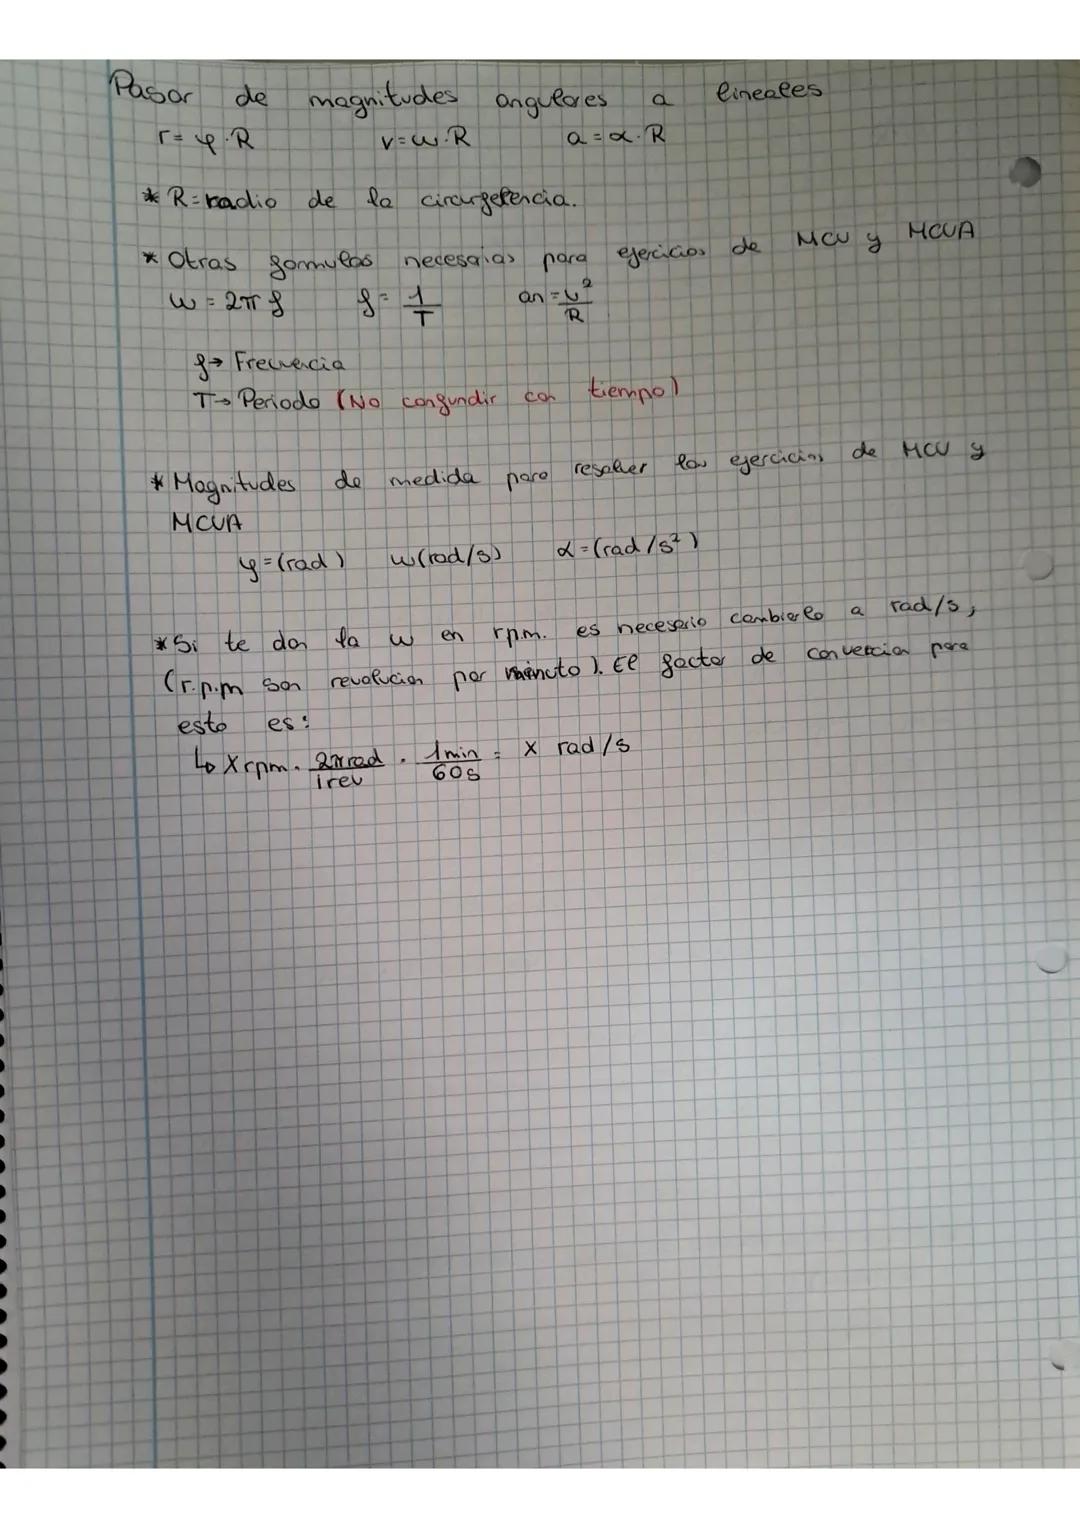 Pasar de magnitudes angulares a lineales
r = φ · R v = ω · R a = α · R
* R = radio de la circunferencia.
* Otras formulas necesarias para ejercicios de MCU y MCUA
ω = 2π f f = 1/T an = v²/R
f → Frecuencia
T → Periodo (No confundir con tiempo)
* Magnitudes de medida para resolver los ejercicios de MCU y
MCUA
φ = (rad) ω (rad/s) α = (rad/s²)
* Si te dan la ω en rpm. es necesario cambiarlo a rad/s,
(r.p.m son revolucion por minuto). El factor de convercion para
esto es:
↳ X rpm · 2π rad/1 rev · 1 min/60 s = X rad/s